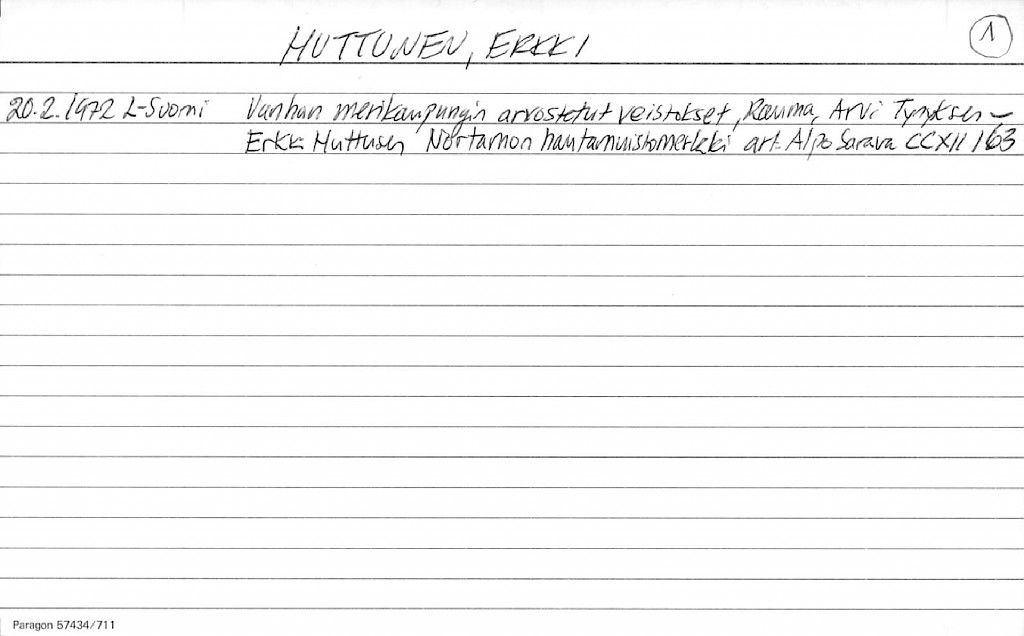 HUTTUNEN, ERKKI
1
20.2.1972 L-Suomi Vanhan merikaupungin arvostetut veistokset, Rauma, Arvi Tynyksen –
Erkki Huttusen Nortamon hautamuistomerkki art. Alpo Sarava CCXII/63
Paragon 57434/711